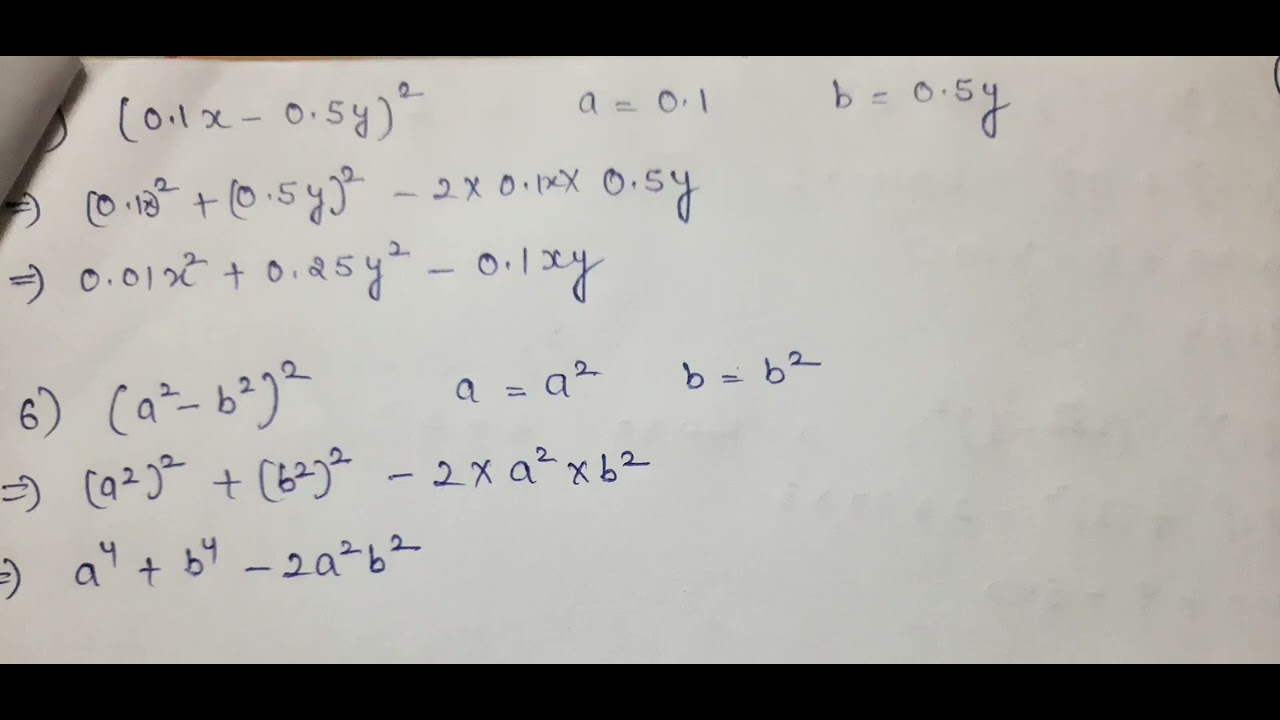 ) (0.1x - 0.5y)² a = 0.1 b = 0.5y
⇒) (0.1x)² + (0.5y)² - 2 × 0.1x × 0.5y
⇒) 0.01x² + 0.25y² - 0.1xy
6) (a² - b²)² a = a² b = b²
⇒) (a²)² + (b²)² - 2 × a² × b²
⇒) a⁴ + b⁴ - 2a²b²